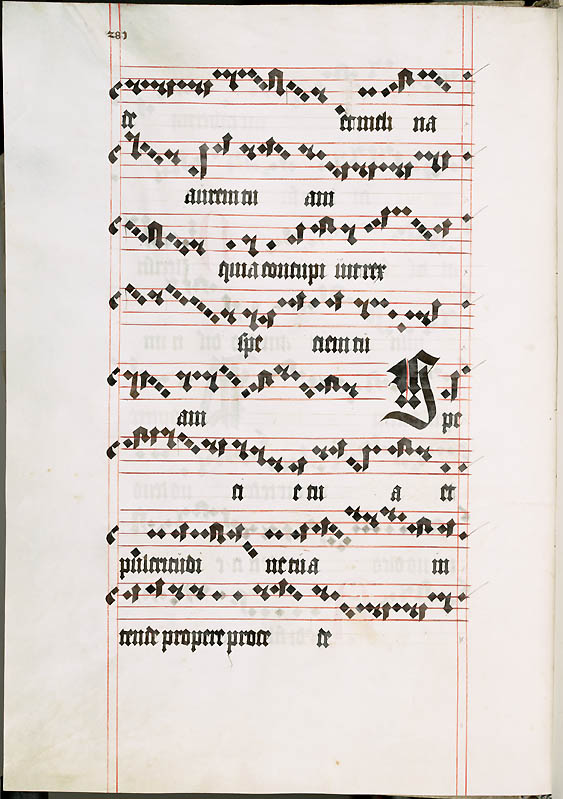 281
de et incli na
aurem tu am
quia concupi uit rex
spe ciem tu
am S pe
ci e tu a et
pulcritudi ne tua in
tende propere proce de